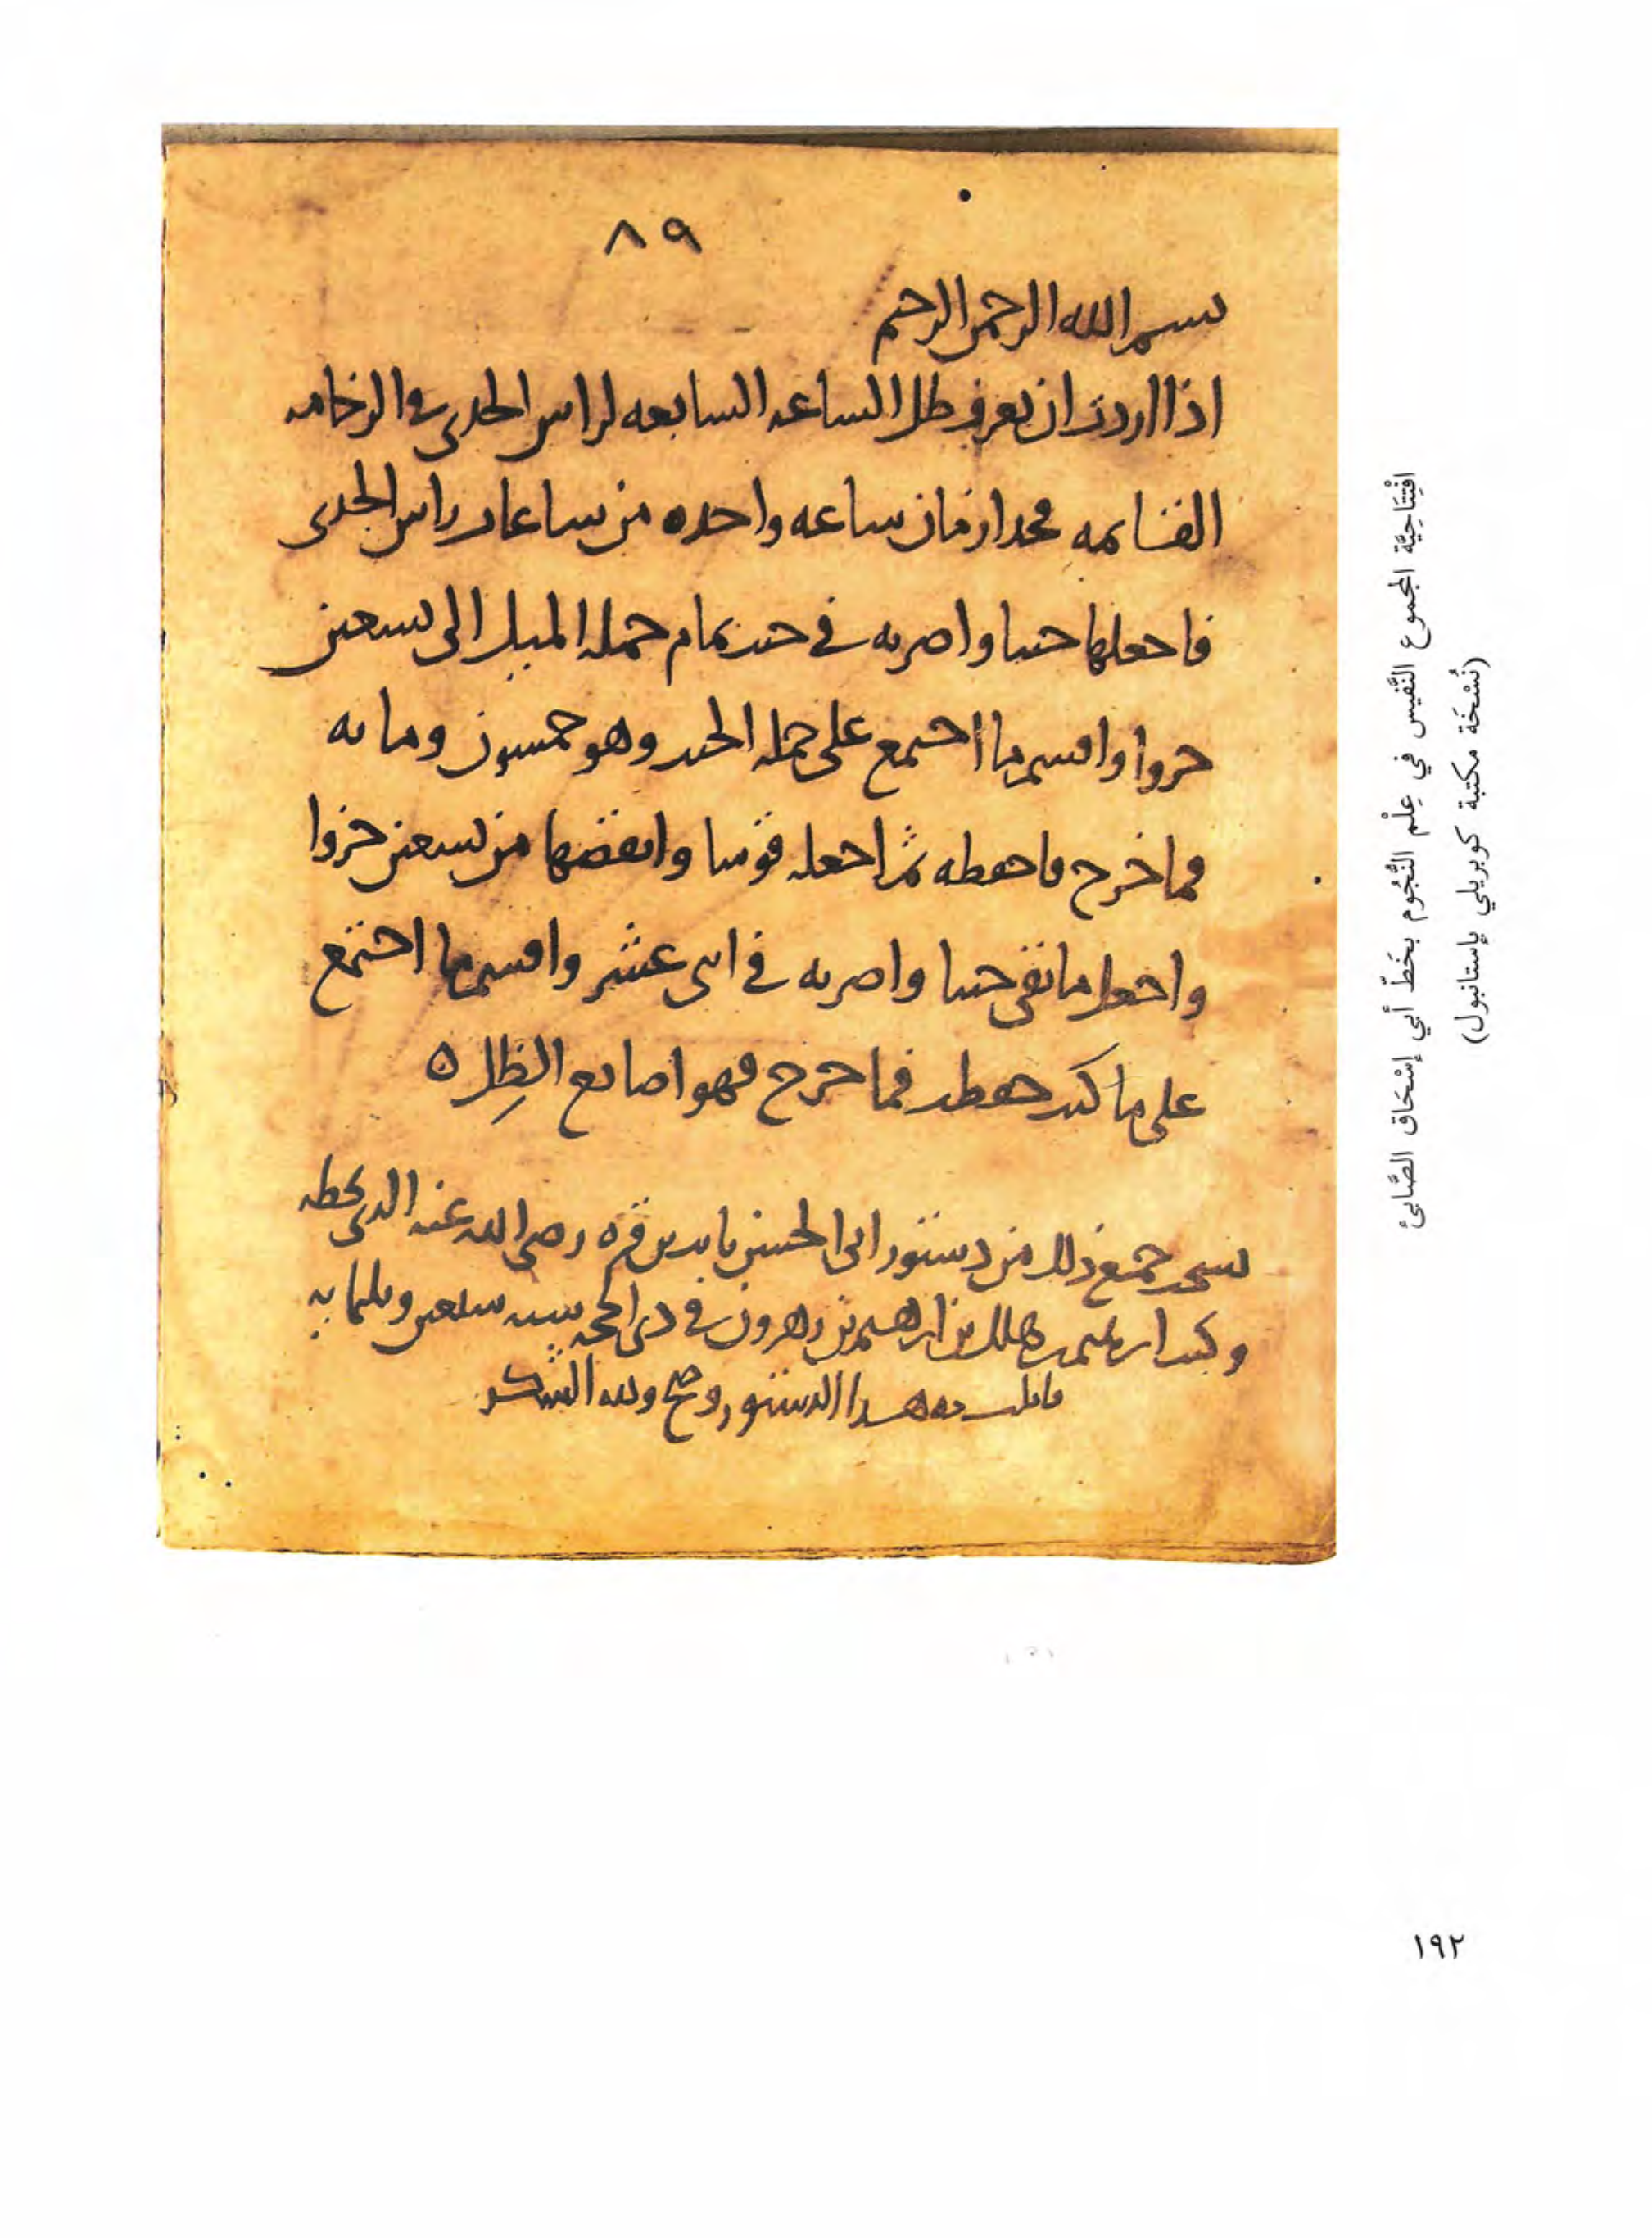 ٨٩
بسم الله الرحمن الرحيم
اذا اردت ان تعرف ظل الساعه السابعه لراس الجدى فى الرخامه
القائمه فخذ ازمان ساعه واحده من ساعات راس الجدى
فاجعلها جيبا واضربه في جيب تمام جمله الميل الى تسعين
جزوا واقسم ما اجتمع على جمله الجيب وهو خمسون ومايه
فما خرج فاحفظه ثم اجعله قوسا وانقصها من تسعين جزوا
واجعل ما بقى جيبا واضربه في اثنى عشر واقسم ما اجتمع
على ما كنت حفظت فما خرج فهو اصابع الظل ه
نسخت جميع ذلك من دستور ابى الحسن ثابت بن قره رضى الله عنه الذى بخطه
وكتب ابرهيم بن هلال بن ابرهيم بن زهرون في ذى الحجه سنه سبعين وثلثمايه
قابلت به هذا الدستور وصح ولله الشكر
افْتِتَاحِيَّة المجموع النَّفِيس في عِلْم النُّجُوم بخَطّ أبي إسْحَاق الصَّابئ
(نُسْخَة مكتبة كوبريلي بإستانبول)
١٩٢